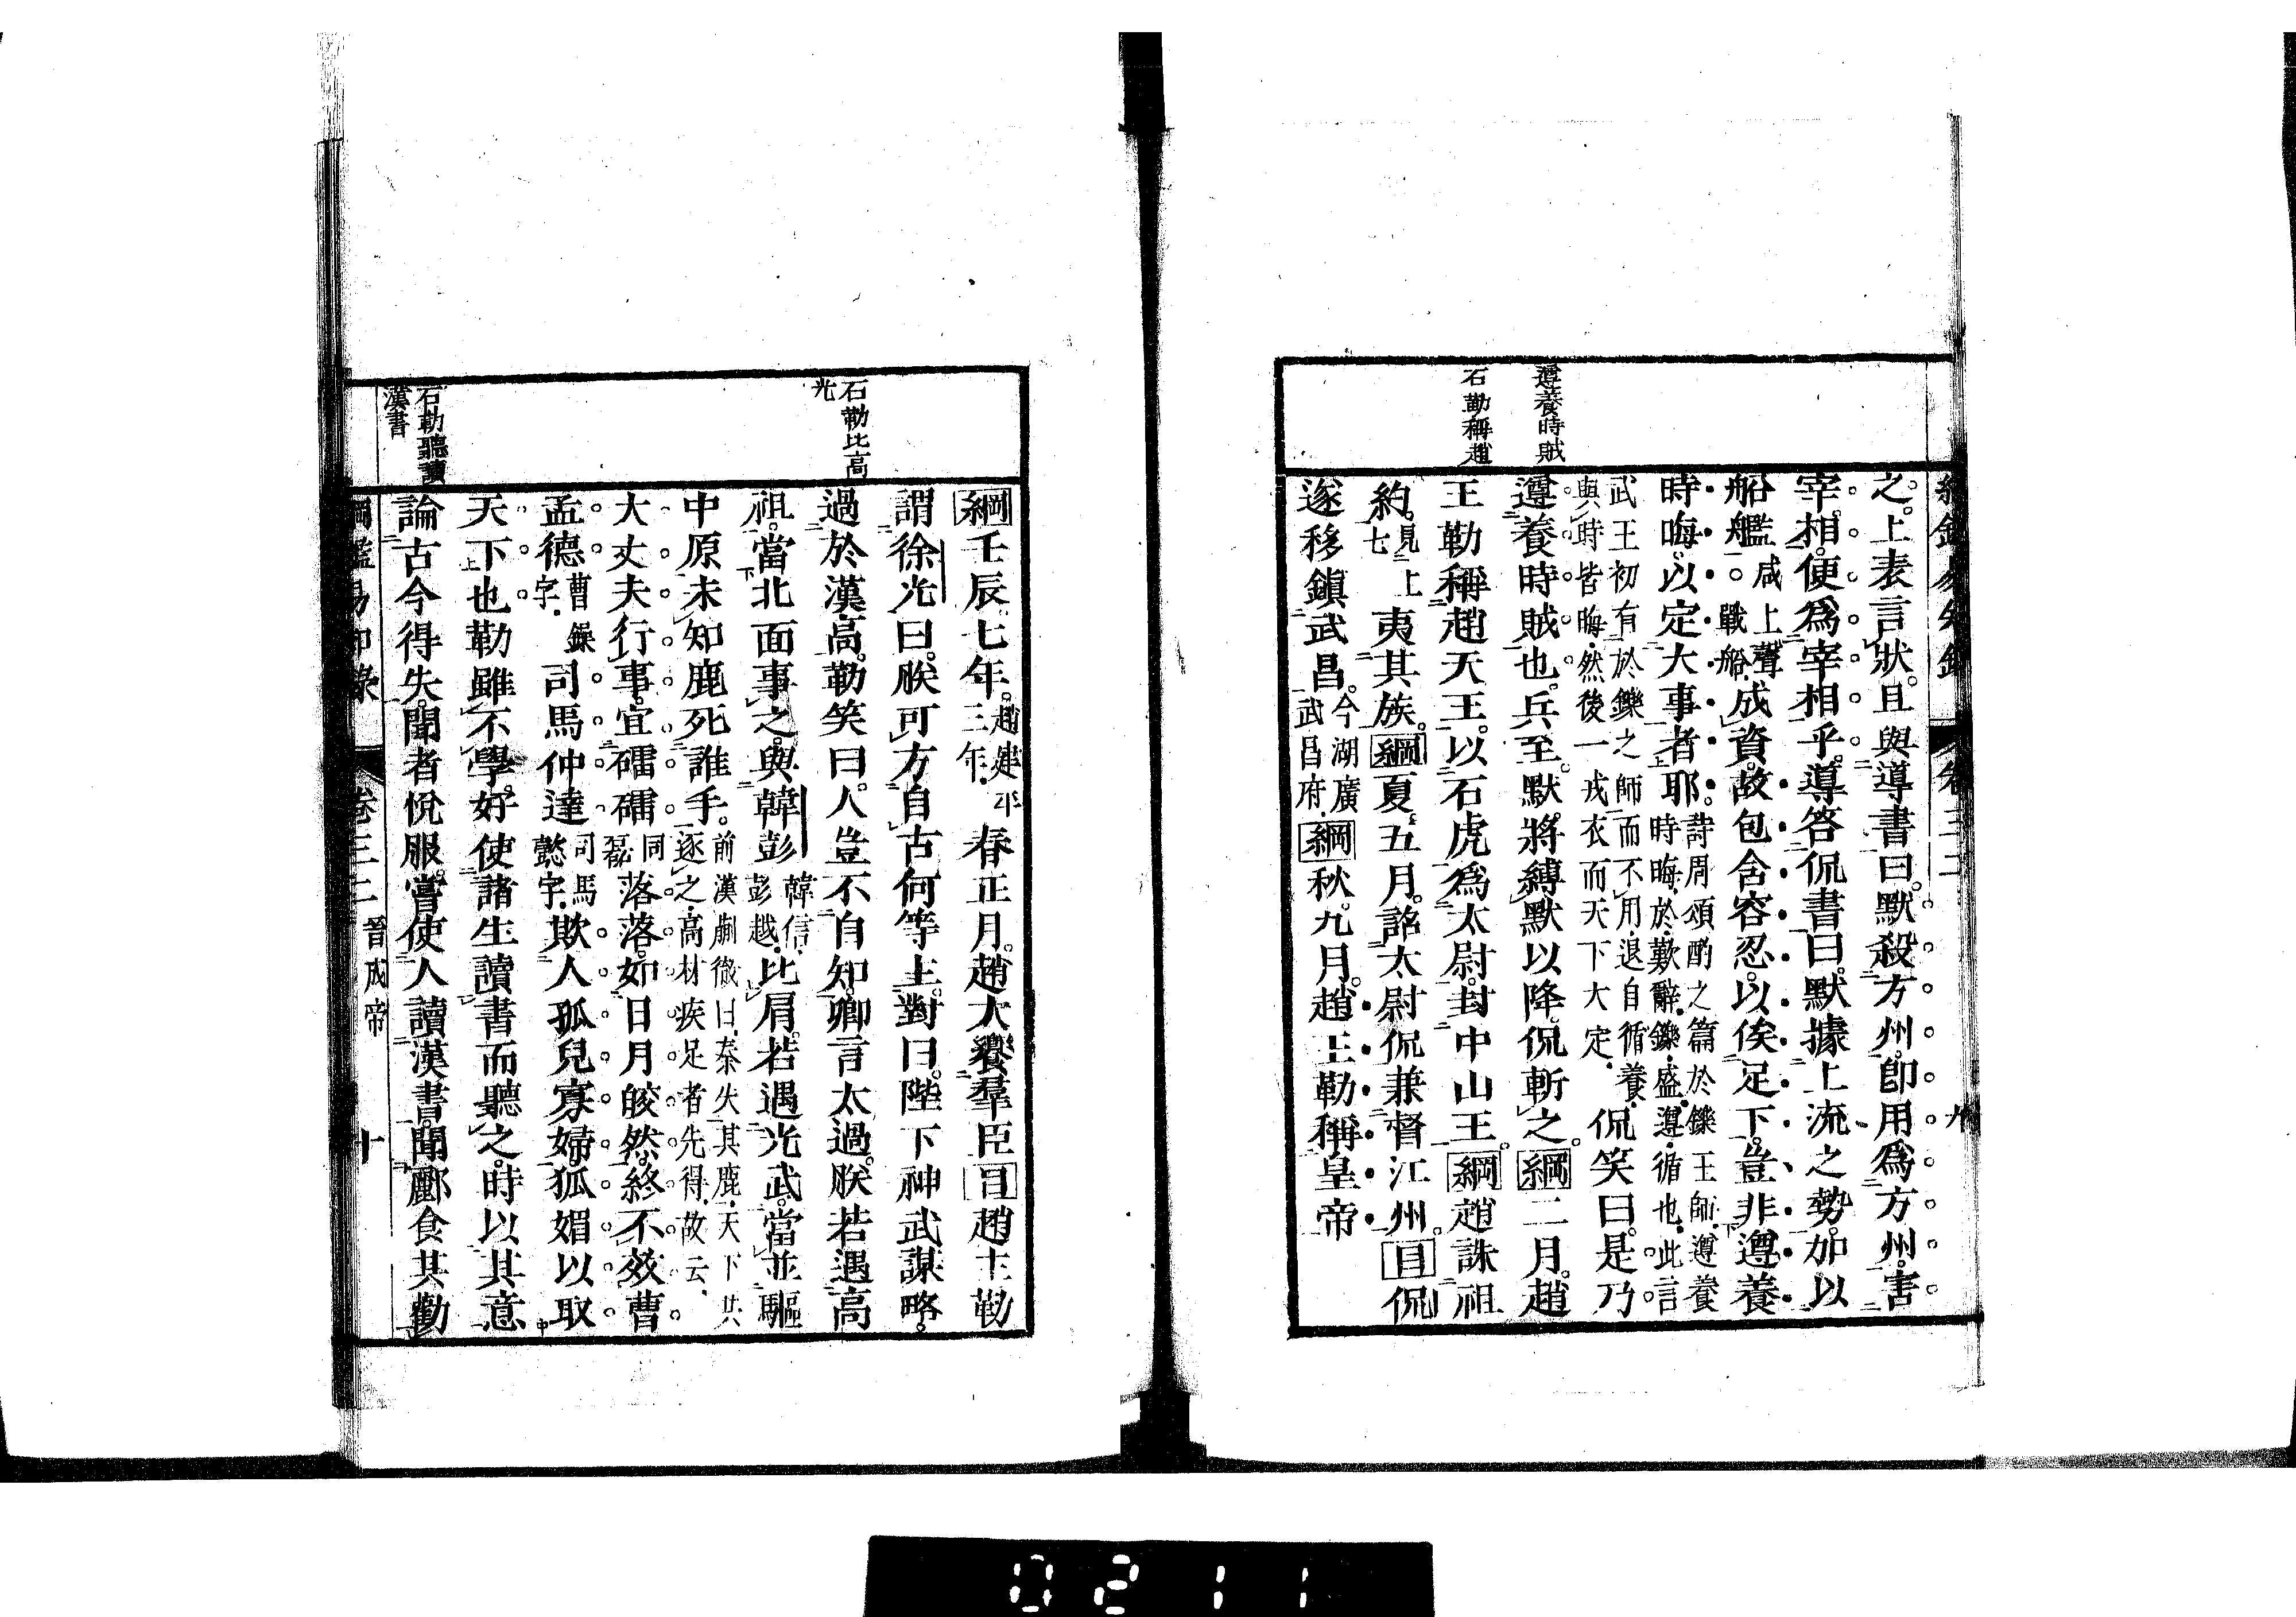 綱鑑易知錄 卷三二 九
遵養時賊
石勒稱趙
之。上表言狀。且與導書曰。默殺方州。卽用爲方州。害
宰相。便爲宰相乎。導答侃書曰。默據上流之勢。加以
船艦咸上聲。戰船。成資。故包含容忍。以俟足下。豈非遵養
時晦。以定大事者耶。詩周頌酌之篇於鑠王師。遵養時晦。於歎辭。鑠盛。遵循也。此言
武王初有於鑠之師而不用。退自循養。與時皆晦。然後一戎衣而天下大定。侃笑曰。是乃
遵養時賊也。兵至。默將縛默以降。侃斬之。綱二月。趙
王勒稱趙天王。以石虎爲太尉。封中山王。綱趙誅祖
約。見上七夷其族。綱夏五月。詔太尉侃兼督江州。目侃
遂移鎭武昌。今湖廣武昌府。綱秋九月。趙王勒稱皇帝
石勒比高光
石勒聽讀漢書
綱壬辰七年。趙建平三年。春正月。趙大饗羣臣目趙主勒
謂徐光曰。朕可方自古何等主。對曰。陛下神武謀略。
過於漢高。勒笑曰。人豈不自知。卿言太過。朕若遇高
祖。當北面事之。與韓彭韓信、彭越。比肩。若遇光武。當並驅
中原未知鹿死誰手。前漢蒯徹曰。秦失其鹿。天下共逐之。高材疾足者先得。故云。
大丈夫行事。宜礌礌同磊落落。如日月皎然。終不效曹
孟德曹操字。司馬仲達司馬懿字。欺人孤兒寡婦。狐媚以取
天下也。勒雖不學。好使諸生讀書而聽之。時以其意
論古今得失。聞者悅服。嘗使人讀漢書。聞酈食其勸
綱鑑易知錄 卷三二 晉成帝 十
0211